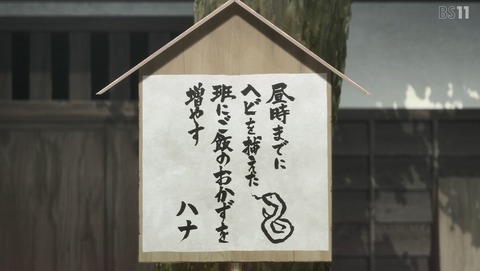 BS11
昼時までに
ヘビを捕えた
班にご飯のおかずを
増やす
ハナ